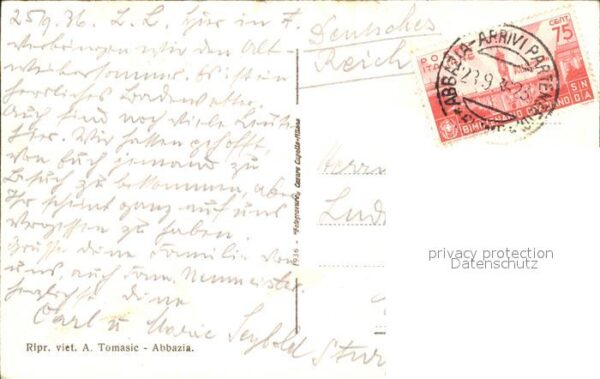 25/9. 36. L. L. Hier in F.
verbringen wir den Alt-
weibersommer. Es ist ein
herrliches Badewetter.
Auch sind noch viele Leute
hier. Wir hatten gehofft
von Euch jemand zu
Besuch zu bekommen, aber
Ihr scheint ganz auf uns
vergessen zu haben.
Grüsse deine Familie von
uns, auch Fam. Neumeister.
Herzlichst deine
Carl u Marie Seybold
Ripr. viet. A. Tomasic - Abbazia.
1936 - Fotogravure, Cesare Capello-Milano
Deutsches
Reich
Herrn
Lud
Stu
POSTE
ITALIANE
CENT. 75
BIMILLENARIO ORAZIANO
ABBAZIA-ARRIVI PARTENZE
privacy protection
Datenschutz